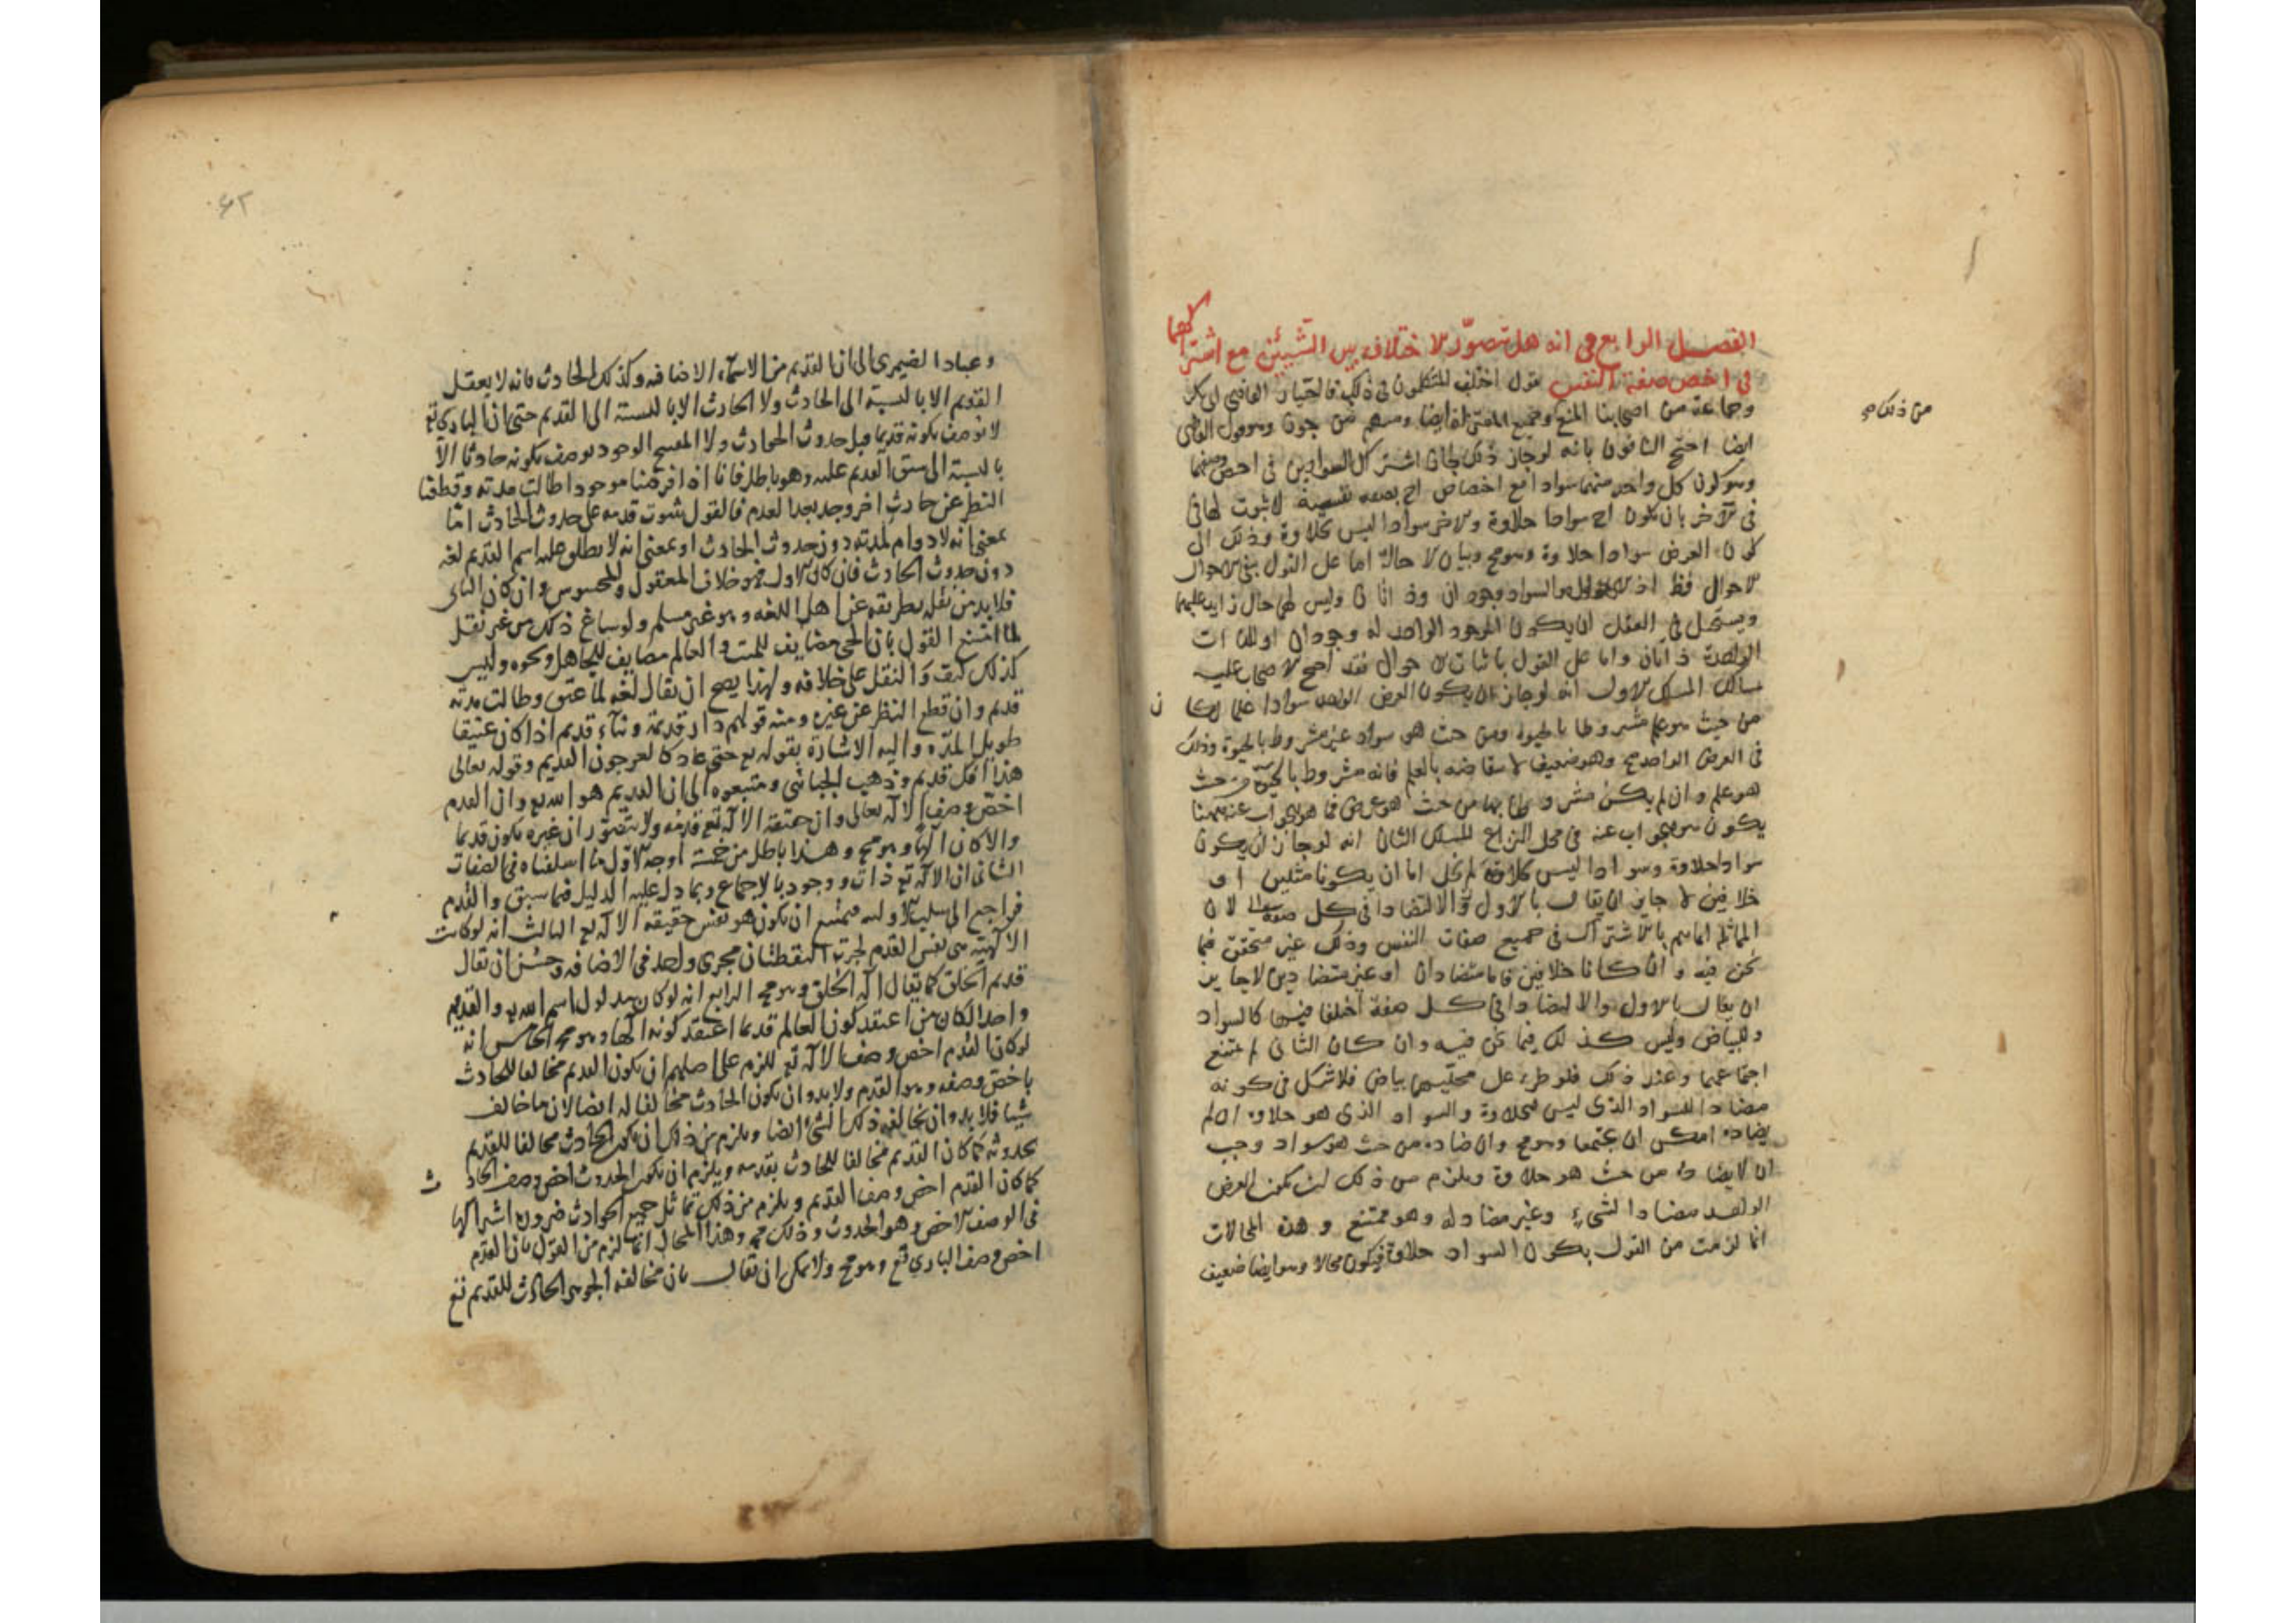 الفصل الرابع في انه هل يتصوّر الاختلاف بين الشيئين مع اشتراكهما
في اخص صفة النفس نقول اختلف المتكلمون في ذلك فاختيار القاضي ابى بكر
وجماعة من اصحابنا المنع وجميع المعتزلة ايضا ومنهم من جوزه وهو قول القاضى
من ذلك
ايضا احتج النافون بانه لو جاز ذلك لجاز اشتراك السوادين في اخص وصفيهما
وهو كون كل واحد منهما سوادا مع اختصاص احدهما بصفة نفسية لا ثبوت لها في
في الاخر بان يكون احدهما سوادا حلاوة والاخر سوادا ليس بحلاوة وذلك الى
كون العرض سوادا حلاوة وهو مح وبيان الاحالة اما على القول بنفى الاحوال
الاحوال فظ اذ السواد وجودان وذاتان وليس لهما حال زايد عليهما
ويستحيل في العقل ان يكون الموجود الواحد له وجودان او للذات
الواحدة ذاتان واما على القول باثبات الاحوال فقد احتج الاصحاب عليه
مسالك المسلك الاول انه لو جاز ان يكون العرض الواحد سوادا علما لكان
من حيث هو علم مشروطا بالحيوة ومن حيث هو سواد غير مشروط بالحيوة وذلك
فى العرض الواحد مح وهو ضعيف لانتقاضه بالعلم فانه مشروط بالحيوة من حيث
هو علم وان لم يكن مشروطا بها من حيث هو عرض فما هو الجواب عنه ههنا
يكون هو الجواب عنه في محل النزاع المسلك الثانى انه لو جاز ان يكون
سوادا حلاوة وسوادا ليس بحلاوة لم يخل اما ان يكونا مثلين او
خلافين لا جايز ان يقال بالاول والا لتضادا في كل صفة لان
المماثلة انما تتم بالاشتراك في جميع صفات النفس وذلك غير متحقق فيما
نحن فيه وان كانا خلافين فاما متضادان او غير متضادين لا جايز
ان يقال بالاول والا لتضادا في كل صفة اختلفا فيها كالسواد
والبياض وليس كذلك فيما نحن فيه وان كان الثانى لم يمتنع
اجتماعهما وعند ذلك فلو طرء على محليهما بياض فلا شك في كونه
مضادا للسواد الذى ليس بحلاوة والسواد الذى هو حلاوة ان لم
يضاده امكن ان يجتمعا وهو مح وان ضاده من حيث هو سواد وجب
ان لا يضاده من حيث هو حلاوة ويلزم من ذلك ان يكون العرض
الواحد مضادا لشىء وغير مضاد له وهو ممتنع وهذه المحالات
انما لزمت من القول بكون السواد حلاوة فيكون محالا وهو ايضا ضعيف
٤٢
وعباد الضيمرى الى ان القديم من الاسماء الاضافية وكذلك الحادث فانه لا يعقل
القديم الا بالنسبة الى الحادث ولا الحادث الا بالنسبة الى القديم حتى ان البارى تع
لا يوصف بكونه قديما قبل حدوث الحوادث ولا الموجود يوصف بكونه حادثا الا
بالنسبة الى سبق القديم عليه وهو باطل فانا اذا فرضنا موجودا طالت مدته وقطعنا
النظر عن حادث اخر وجد بعد العدم فالقول بثبوت قدمه على حدوث الحادث اما
بمعنى انه لا دوام لمدته دون حدوث الحادث او بمعنى انه لا يطلق عليه اسم القديم لغة
دون حدوث الحادث فان كان الاول فهو خلاف المعقول والمحسوس وان كان الثانى
فلابد من نقله بطريقه عن اهل اللغه وهو غير مسلم ولو ساغ ذلك من غير نقل
لما امتنع القول بان الحى مضايف للميت والعالم مضايف للجاهل ونحوه وليس
كذلك كيف والنقل على خلافه ولهذا يصح ان يقال لغة لما عتق وطالت مدته
قديم وان قطع النظر عن غيره ومنه قولهم دار قديمة وبناء قديم اذا كان عتيقا
طويل المدة واليه الاشارة بقوله تع حتى عاد كالعرجون القديم وقوله تعالى
هذا افك قديم وذهب الجبائى ومتبعوه الى ان القديم هو الله تع وان القدم
اخص وصف الاله تعالى وان حقيقة الاله تع قدمه ولا يتصور ان غيره يكون قديما
والا كان الها وهو مح وهذا باطل من خمسة اوجه الاول ما اسلفناه في الصفات
الثانى ان الاله تع ذات ووجود بالاجماع وبما دل عليه الدليل فيما سبق والقدم
فراجع الى سلب الاولية فيمتنع ان يكون هو نفس حقيقة الاله تع الثالث انه لو كانت
الالهية هى نفس القدم لجرت اللفظتان مجرى واحد في الاضافة وحسن ان يقال
قديم الخلق كما يقال اله الخلق وهو مح الرابع انه لو كان مدلول اسم الله تع والقديم
واحدا لكان من اعتقد كون العالم قديما اعتقد كونه الها وهو مح الخامس انه
لو كان القدم اخص وصف الاله تع للزم على اصلهم ان يكون القديم مخالفا للحادث
باخص وصفه وهو القدم ولابد وان يكون الحادث مخالفا له ايضا لان ما خالف
شيا فلابد وان يخالفه ذلك الشئ ايضا ويلزم من ذلك ان يكون الحادث مخالفا للقديم
بحدوثه كما كان القديم مخالفا للحادث بقدمه ويلزم ان يكون الحدوث اخص وصف الحادث
كما كان القدم اخص وصف القديم ويلزم من ذلك تماثل جميع الحوادث ضرورة اشتراكها
فى الوصف الاخص وهو الحدوث وذلك مح وهذا المحال انما لزم من القول بان القدم
اخص وصف البارى تع وهو مح ولا يمكن ان يقال بان مخالفة الجوهر الحادث للقديم تع